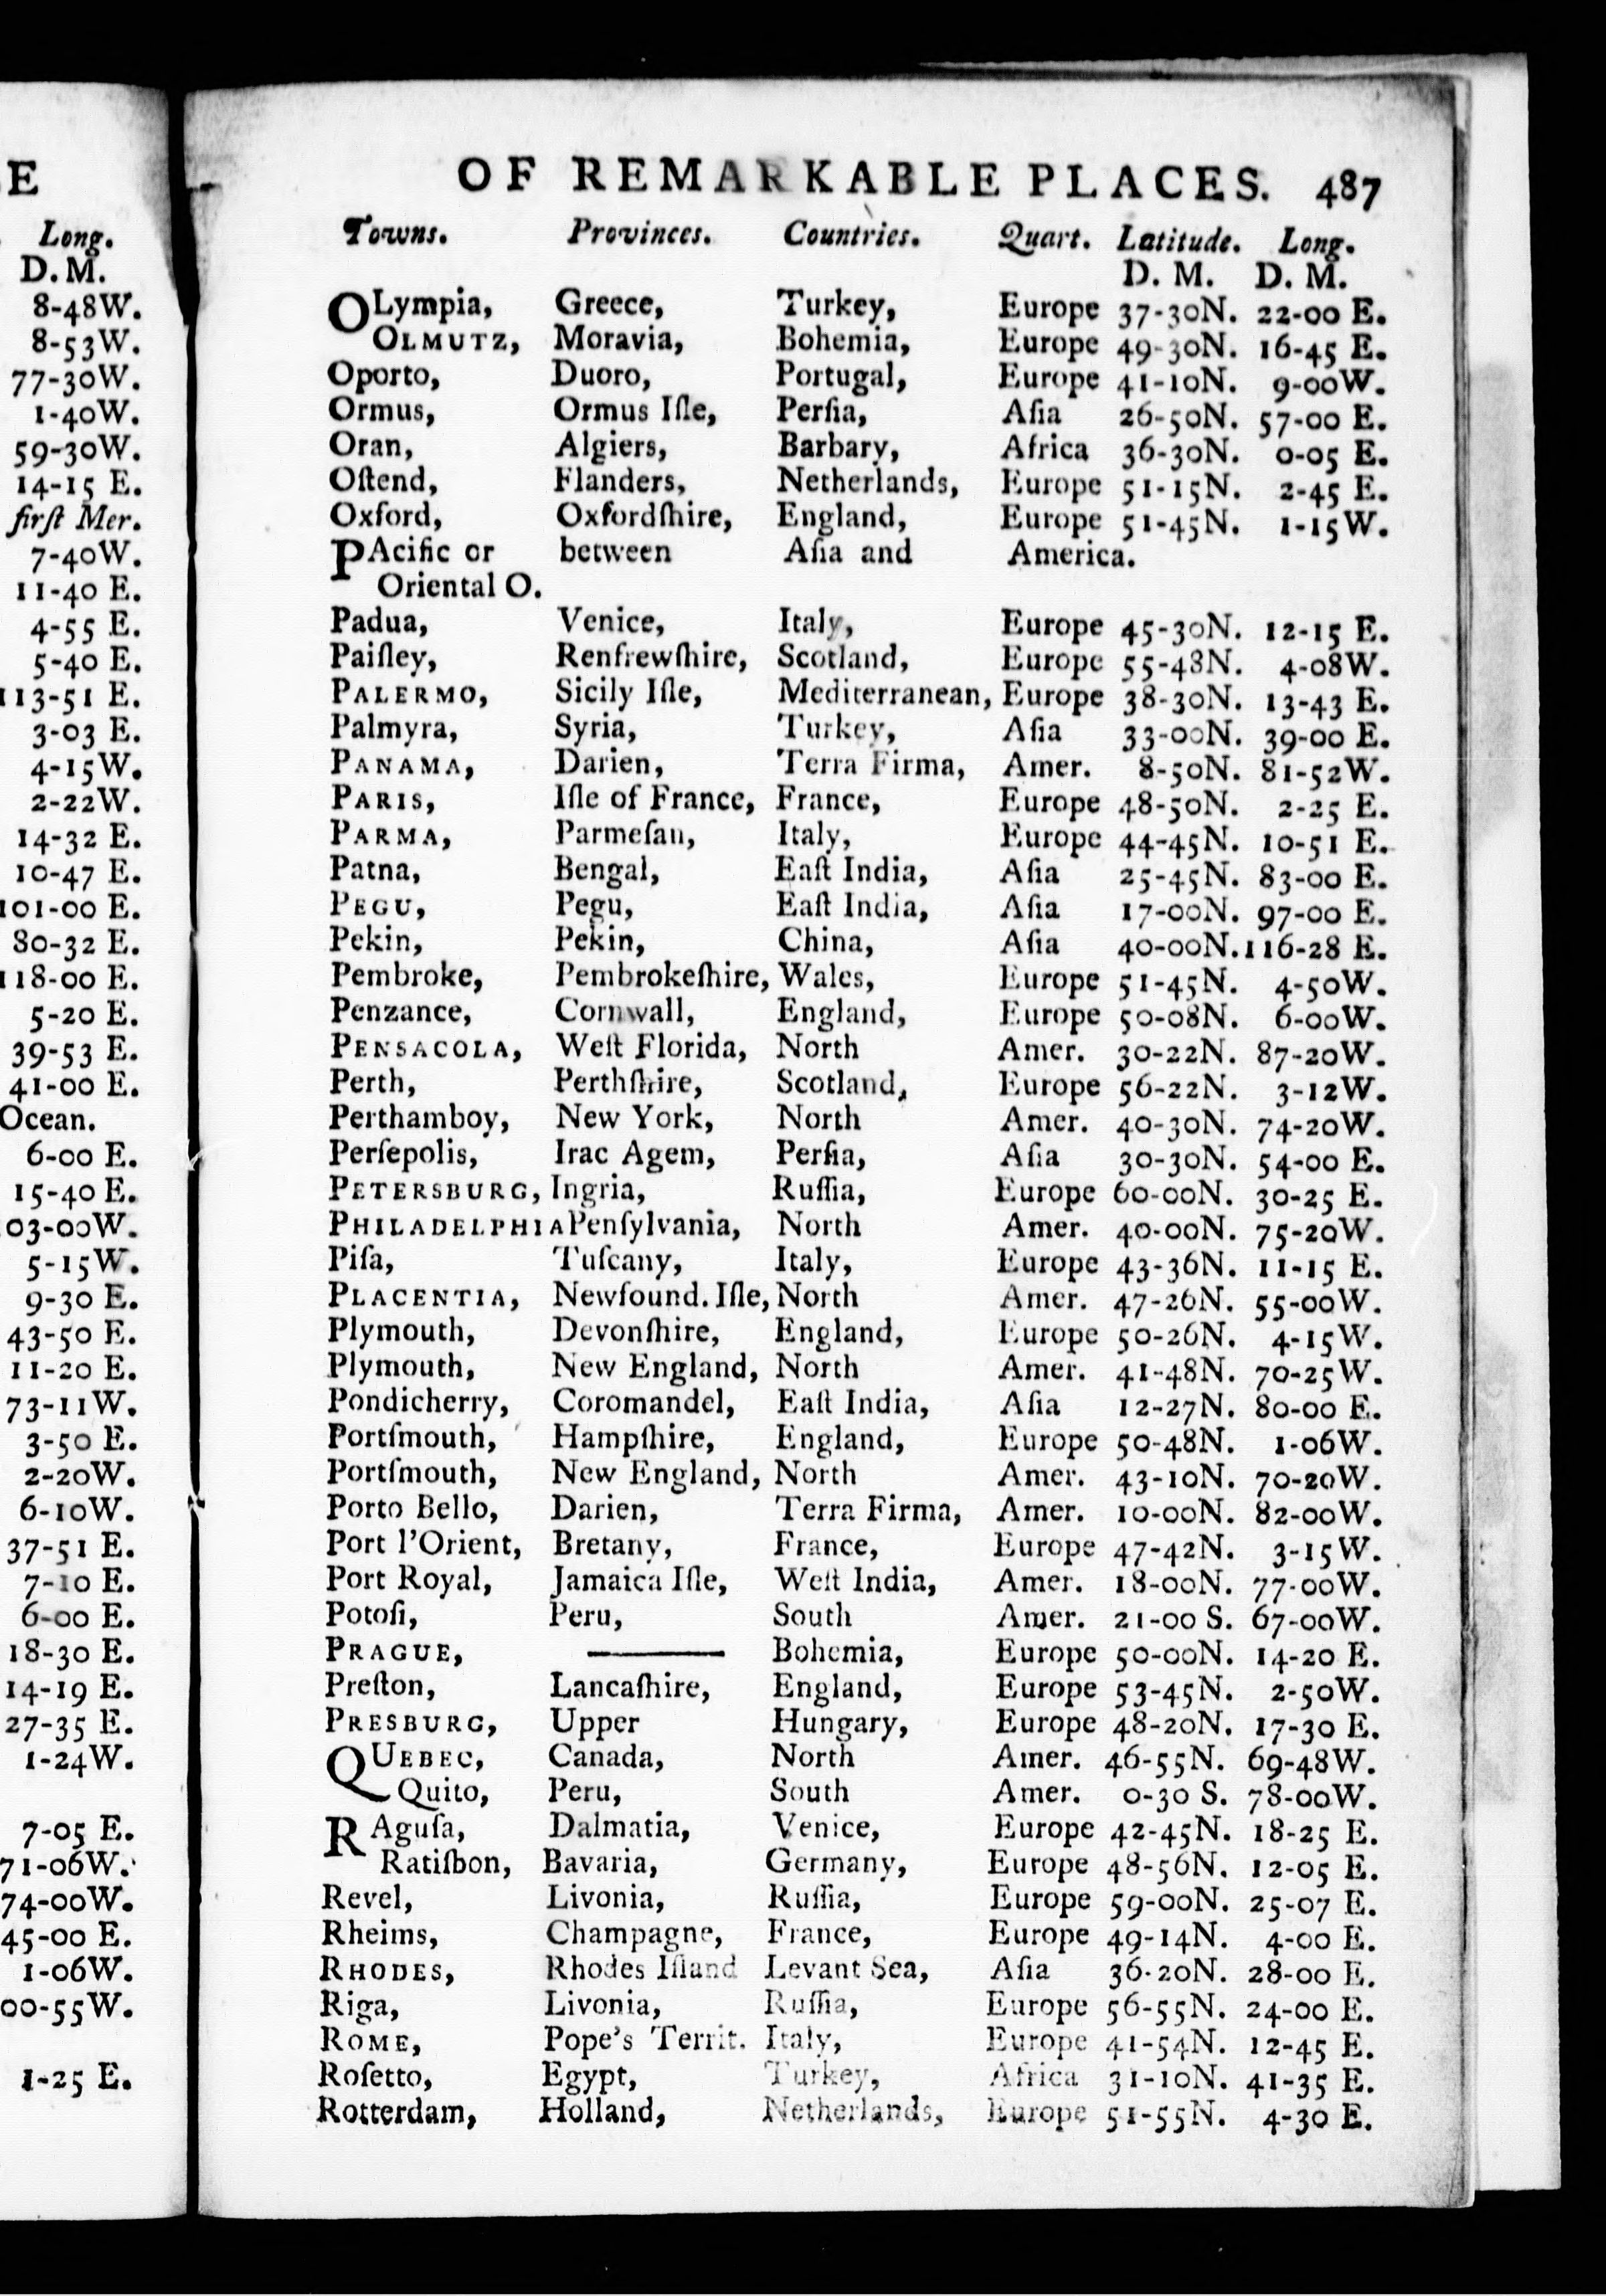 E
Long.
D. M.
8-48W.
8-53W.
77-30W.
1-40W.
59-30W.
14-15 E.
firſt Mer.
7-40W.
11-40 E.
4-55 E.
5-40 E.
113-51 E.
3-03 E.
4-15W.
2-22W.
14-32 E.
10-47 E.
101-00 E.
80-32 E.
118-00 E.
5-20 E.
39-53 E.
41-00 E.
Ocean.
6-00 E.
15-40 E.
03-00W.
5-15W.
9-30 E.
43-50 E.
11-20 E.
73-11W.
3-50 E.
2-20W.
6-10W.
37-51 E.
7-10 E.
6-00 E.
18-30 E.
14-19 E.
27-35 E.
1-24W.
7-05 E.
71-06W.
74-00W.
45-00 E.
1-06W.
00-55W.
1-25 E.
OF REMARKABLE PLACES. 487
Towns. Provinces. Countries. Quart. Latitude. Long.
D. M. D. M.
OLympia, Greece, Turkey, Europe 37-30N. 22-00 E.
OLMUTZ, Moravia, Bohemia, Europe 49-30N. 16-45 E.
Oporto, Duoro, Portugal, Europe 41-10N. 9-00W.
Ormus, Ormus Iſle, Perſia, Aſia 26-50N. 57-00 E.
Oran, Algiers, Barbary, Africa 36-30N. 0-05 E.
Oſtend, Flanders, Netherlands, Europe 51-15N. 2-45 E.
Oxford, Oxfordſhire, England, Europe 51-45N. 1-15W.
PAcific or between Aſia and America.
Oriental O.
Padua, Venice, Italy, Europe 45-30N. 12-15 E.
Paiſley, Renfrewſhire, Scotland, Europe 55-48N. 4-08W.
PALERMO, Sicily Iſle, Mediterranean, Europe 38-30N. 13-43 E.
Palmyra, Syria, Turkey, Aſia 33-00N. 39-00 E.
PANAMA, Darien, Terra Firma, Amer. 8-50N. 81-52W.
PARIS, Iſle of France, France, Europe 48-50N. 2-25 E.
PARMA, Parmeſan, Italy, Europe 44-45N. 10-51 E.
Patna, Bengal, Eaſt India, Aſia 25-45N. 83-00 E.
PEGU, Pegu, Eaſt India, Aſia 17-00N. 97-00 E.
Pekin, Pekin, China, Aſia 40-00N. 116-28 E.
Pembroke, Pembrokeſhire, Wales, Europe 51-45N. 4-50W.
Penzance, Cornwall, England, Europe 50-08N. 6-00W.
PENSACOLA, Weſt Florida, North Amer. 30-22N. 87-20W.
Perth, Perthſhire, Scotland, Europe 56-22N. 3-12W.
Perthamboy, New York, North Amer. 40-30N. 74-20W.
Perſepolis, Irac Agem, Perſia, Aſia 30-30N. 54-00 E.
PETERSBURG, Ingria, Ruſſia, Europe 60-00N. 30-25 E.
PHILADELPHIA Penſylvania, North Amer. 40-00N. 75-20W.
Piſa, Tuſcany, Italy, Europe 43-36N. 11-15 E.
PLACENTIA, Newfound. Iſle, North Amer. 47-26N. 55-00W.
Plymouth, Devonſhire, England, Europe 50-26N. 4-15W.
Plymouth, New England, North Amer. 41-48N. 70-25W.
Pondicherry, Coromandel, Eaſt India, Aſia 12-27N. 80-00 E.
Portſmouth, Hampſhire, England, Europe 50-48N. 1-06W.
Portſmouth, New England, North Amer. 43-10N. 70-20W.
Porto Bello, Darien, Terra Firma, Amer. 10-00N. 82-00W.
Port l'Orient, Bretany, France, Europe 47-42N. 3-15W.
Port Royal, Jamaica Iſle, Weſt India, Amer. 18-00N. 77-00W.
Potoſi, Peru, South Amer. 21-00 S. 67-00W.
PRAGUE, ——— Bohemia, Europe 50-00N. 14-20 E.
Preſton, Lancaſhire, England, Europe 53-45N. 2-50W.
PRESBURG, Upper Hungary, Europe 48-20N. 17-30 E.
QUEBEC, Canada, North Amer. 46-55N. 69-48W.
Quito, Peru, South Amer. 0-30 S. 78-00W.
RAguſa, Dalmatia, Venice, Europe 42-45N. 18-25 E.
Ratiſbon, Bavaria, Germany, Europe 48-56N. 12-05 E.
Revel, Livonia, Ruſſia, Europe 59-00N. 25-07 E.
Rheims, Champagne, France, Europe 49-14N. 4-00 E.
RHODES, Rhodes Iſland Levant Sea, Aſia 36-20N. 28-00 E.
Riga, Livonia, Ruſſia, Europe 56-55N. 24-00 E.
ROME, Pope's Territ. Italy, Europe 41-54N. 12-45 E.
Roſetto, Egypt, Turkey, Africa 31-10N. 41-35 E.
Rotterdam, Holland, Netherlands, Europe 51-55N. 4-30 E.